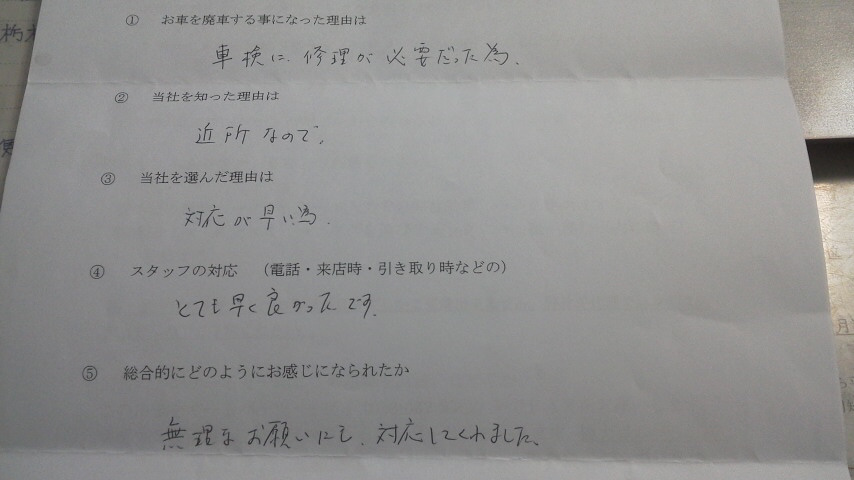 ① お車を廃車する事になった理由は
車検に、修理が必要だった為。
② 当社を知った理由は
近所なので。
③ 当社を選んだ理由は
対応が早い為。
④ スタッフの対応 (電話・来店時・引き取り時などの)
とても早く良かったです。
⑤ 総合的にどのようにお感じになられたか
無理なお願いにも、対応してくれました。